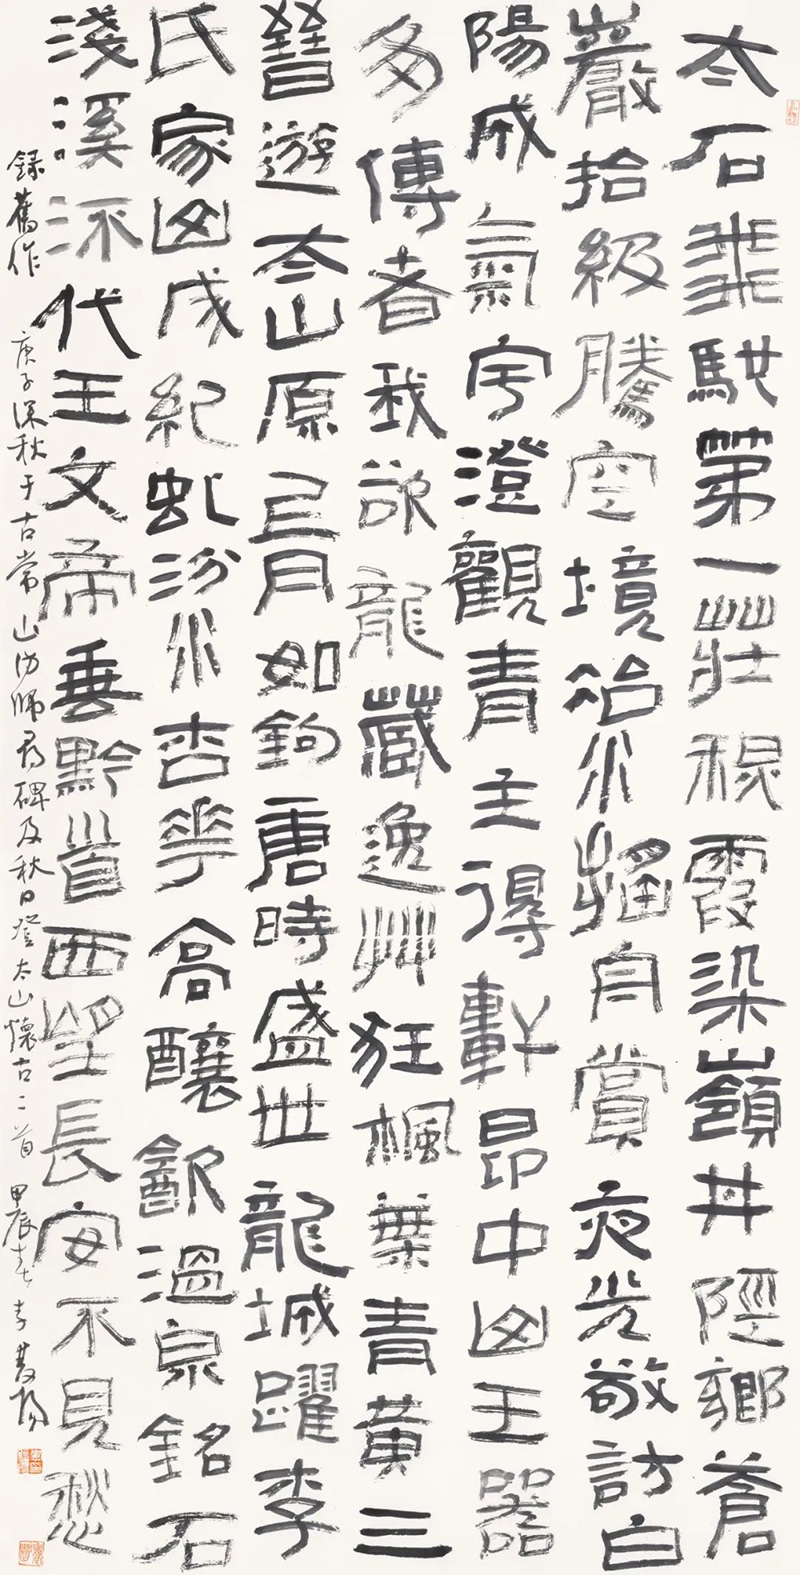 太石第一莊霞染嶺丹陘鄉蒼
巖拾級騰空境冶水自賞夜光敬訪白
陽成氣宇澄觀青主得軒昂中山王器
多傳者我欲龍藏逸艸狂楓葉青黃三
晉遊太山原上月如鉤唐時盛世龍城躍李
氏家山成紀虬汾水杏花高釀飲溫泉銘石
淺溪流代王文帝垂黔首西望長安不見愁
錄舊作 庚子深秋于古常山訪師尋碑及秋日登太山懷古二首 甲辰春 李陽